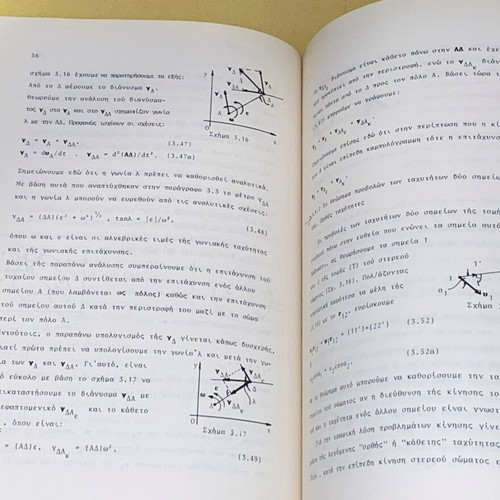 56
σχήμα 3.16 έχουμε να παρατηρήσουμε τα εξής:
Από το Δ φέρουμε το διάνυσμα γ_Α.
θεωρούμε την ανάλυση του διανύσμα-
τος γ_Δ στο γ_Α και στο γ_ΔΑ σχηματίζον γωνία
λ με την ΑΔ. Προφανώς ισχύουν οι σχέσεις:
γ_Δ = γ_Α + γ_ΔΑ, (3.47)
γ_Δ = dυ_Δ/dt , γ_ΔΑ = d²(ΑΔ)/dt². (3.47α)
Σχήμα 3.16
Σημειώνουμε εδώ ότι η γωνία λ πρέπει να καθορισθεί αναλυτικά.
Με βάση αυτά που αναπτύχθηκαν στην παράγραφο 3.3 το μέτρο γ_ΔΑ
και η γωνία λ μπορούν να ευρεθούν από τις αναλυτικές σχέσεις:
γ_ΔΑ = (ΔΑ)(ε² + ω⁴)^½, tanλ = |ε|/ω², (3.48)
όπου ω και ε είναι οι αλγεβρικές τιμές της γωνιακής ταχύτητας
και της γωνιακής επιτάχυνσης.
Βάσει της παραπάνω ανάλυσης συμπεραίνουμε ότι η επιτάχυνση του
τυχαίου σημείου Δ συντίθεται από την επιτάχυνση ενός άλλου
σημείου Α (που λαμβάνεται ως πόλος) καθώς και την επιτάχυνση
του σημείου αυτού Δ κατά την περιστροφή του μαζί με το σώμα
περί τον πόλο Α.
Εντούτοις, ο παραπάνω υπολογισμός της γ_Δ γίνεται κάπως δυσχερής,
γιατί πρώτα πρέπει να υπολογίσουμε την γωνία λ και μετά την γω-
νία των γ_Α και γ_ΔΑ. Γι'αυτό, είναι
εύκολο με βάση το σχήμα 3.17 να
αντικαταστήσουμε το διάνυσμα γ_ΔΑ με
εφαπτομενικό γ_ΔΑε και το κάθετο
, όπου είναι:
= (ΑΔ)ε, γ_ΔΑκ = (ΑΔ)ω². (3.49)
Σχήμα 3.17
διάνυσμα είναι κάθετο πάνω στην ΑΔ και έχει
από την περιστροφή, ενώ το γ_ΔΑκ διάνυσμα
πάντα από το Δ προς τον πόλο Α. Βάσει τώρα
μπορούμε να γράψουμε:
εδώ ότι στην περίπτωση που η κί
είναι επίπεδη καμπυλόγραμμη τότε η επιτάχυνσ
Το θεώρημα προβολών των ταχυτήτων δύο σημείων
Οι προβολές των ταχυτήτων δύο σημείων της τομής
πάνω στην ευθεία που ενώνει τα σημεία αυτά
ας θεωρήσουμε τα σημεία 1
της τομής (Τ) του στερεού
(Σχ. 3.18). Πολ/ζοντας
τα μέλη της
με το r₁₂, ευρίσκουμε
= (11')=(22') (3.52)
(3.52α)
Σχήμα
θεώρημα αυτό μπορούμε να καθορίσουμε την τα
του σώματος αν η διεύθυνση της κίνησης το
και η ταχύτητα ενός άλλου σημείου είναι γνωστ
Για την γραφική λύση προβλημάτων κίνησης γίνε
της λεγόμενης "ορθής" ή "κάθετης" ταχύτητας
κατά την επίπεδη κίνηση στερεού σώματος ε